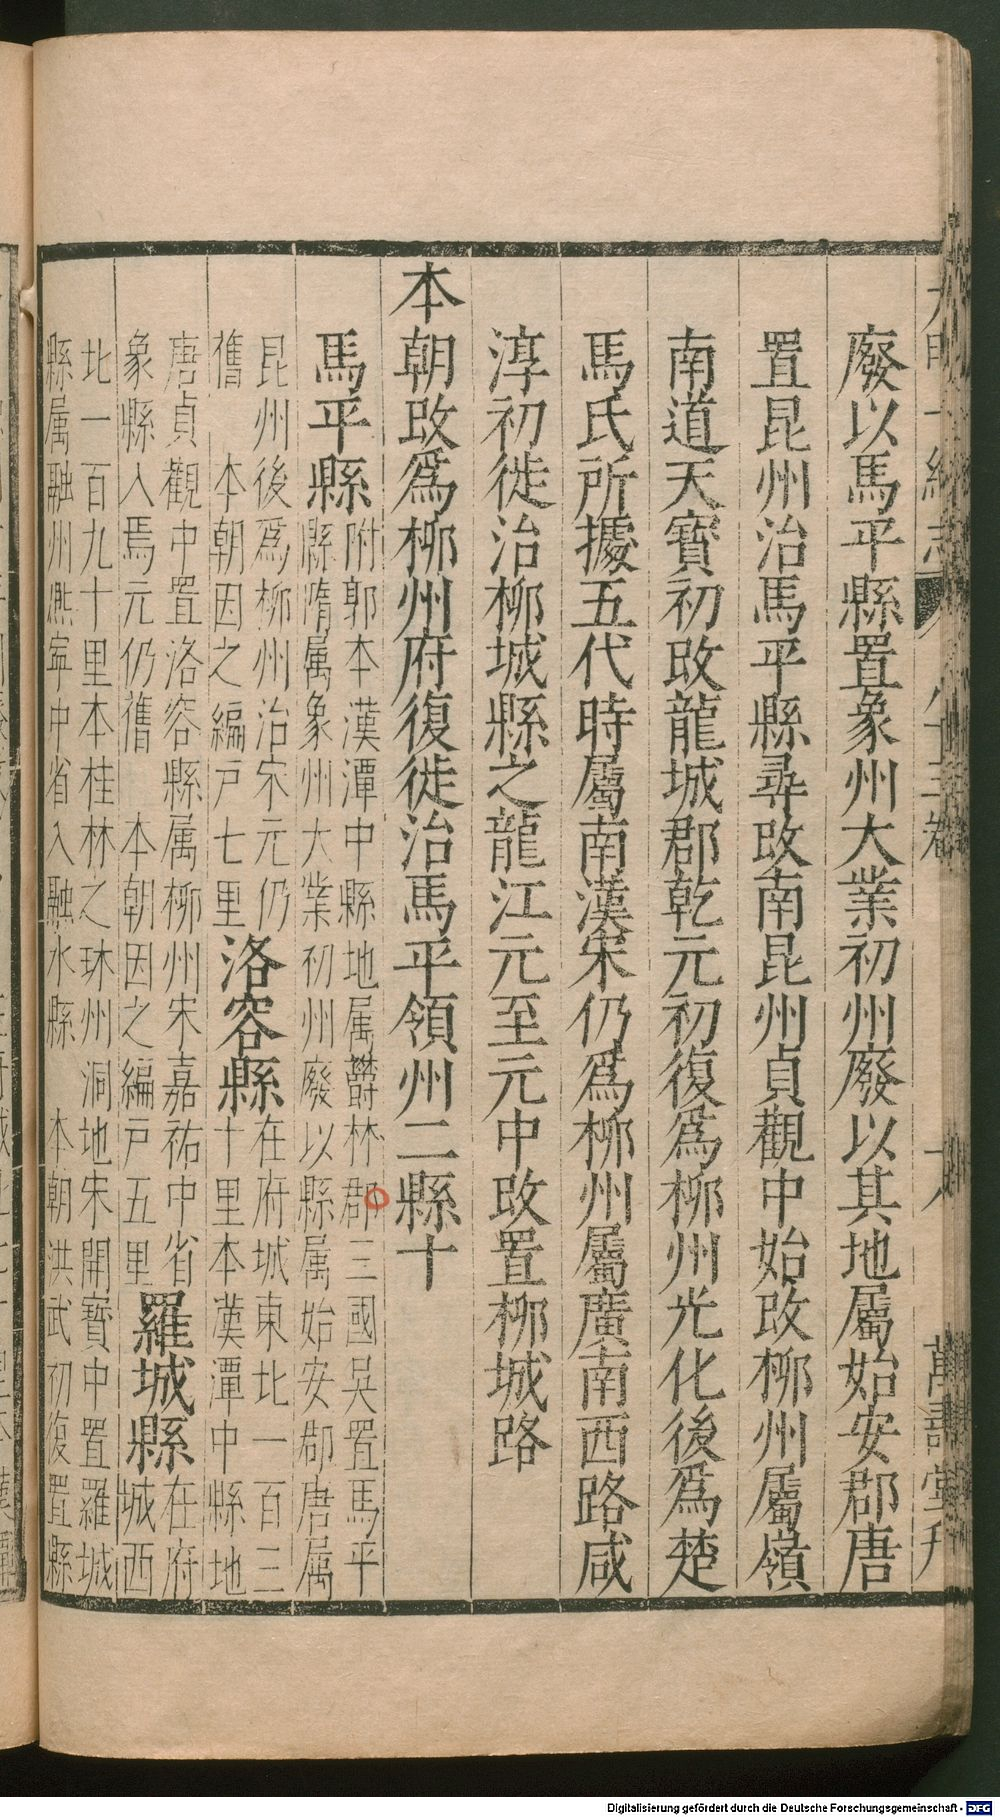 廢以馬平縣置象州大業初州廢以其地屬始安郡唐
置昆州治馬平縣尋改南昆州貞觀中始改柳州屬嶺
南道天寶初改龍城郡乾元初復爲柳州光化後爲楚
馬氏所據五代時屬南漢宋仍爲柳州屬廣南西路咸
淳初徙治柳城縣之龍江元至元中改置柳城路
本朝改爲柳州府復徙治馬平領州二縣十
馬平縣
附郭本漢潭中縣地属欝林郡三國吳置馬平
縣隋属象州大業初州廢以縣属始安郡唐属
昆州後爲柳州治宋元仍
舊 本朝因之編戸七里
洛容縣
在府城東北一百三
十里本漢潭中縣地
唐貞觀中置洛容縣属柳州宋嘉祐中省
象縣入焉元仍舊 本朝因之編戸五里
羅城縣
在府
城西
北一百九十里本桂林之琳州洞地宋開寶中置羅城
縣属融州熈寧中省入融水縣 本朝洪武初復置縣